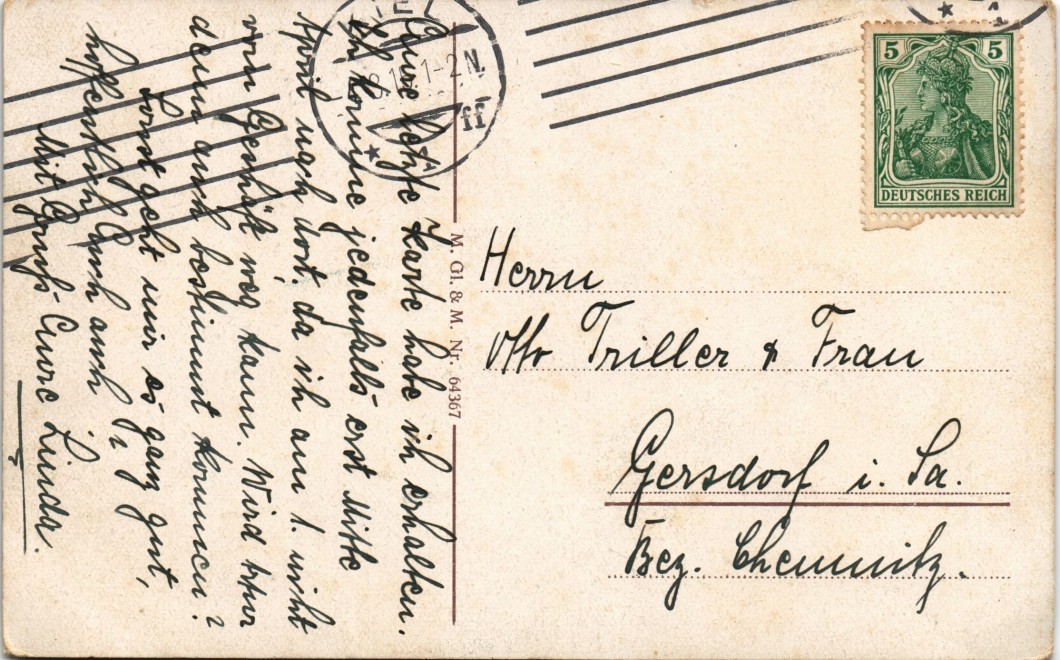 Eure letzte Karte habe ich erhalten.
Ich komme jedenfalls erst Mitte
April nach dort, da ich am 1. nicht
vom Geschäft weg kann. Wird
denn auch bestimmt kommen?
Sonst geht mir es ganz gut,
hoffentlich Euch auch?
Mit Gruß Eure Linda.
M. Gl. & M. Nr. 64367
5 5
DEUTSCHES REICH
1-2 N.
Herrn
Otto Triller & Frau
Gersdorf i. Sa.
Bez. Chemnitz.